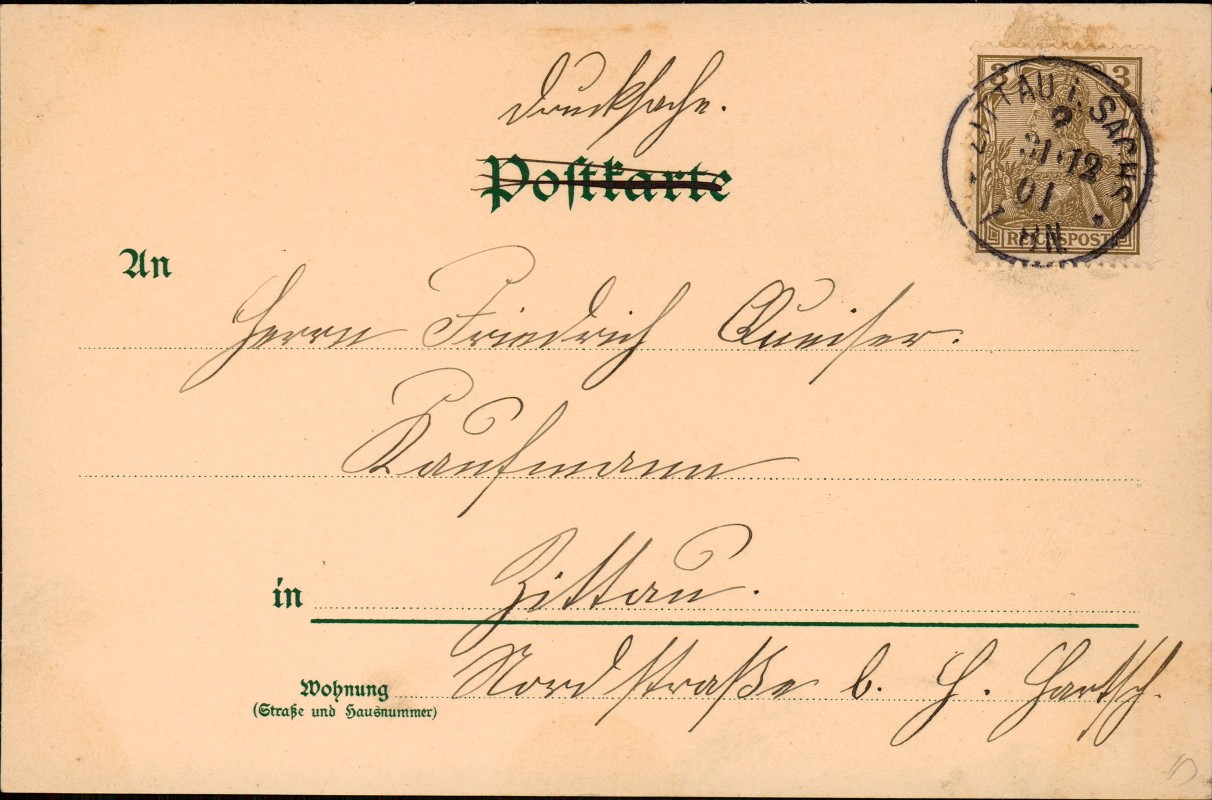 Drucksache.
Postkarte
3 3
ZITTAU i. SACHS.
31.12
01
RN.
1
REICHSPOST
An
Herrn Friedrich Queißer.
Kaufmann
in Zittau.
Wohnung Nordstraße b. H. Hartsch.
(Straße und Hausnummer)